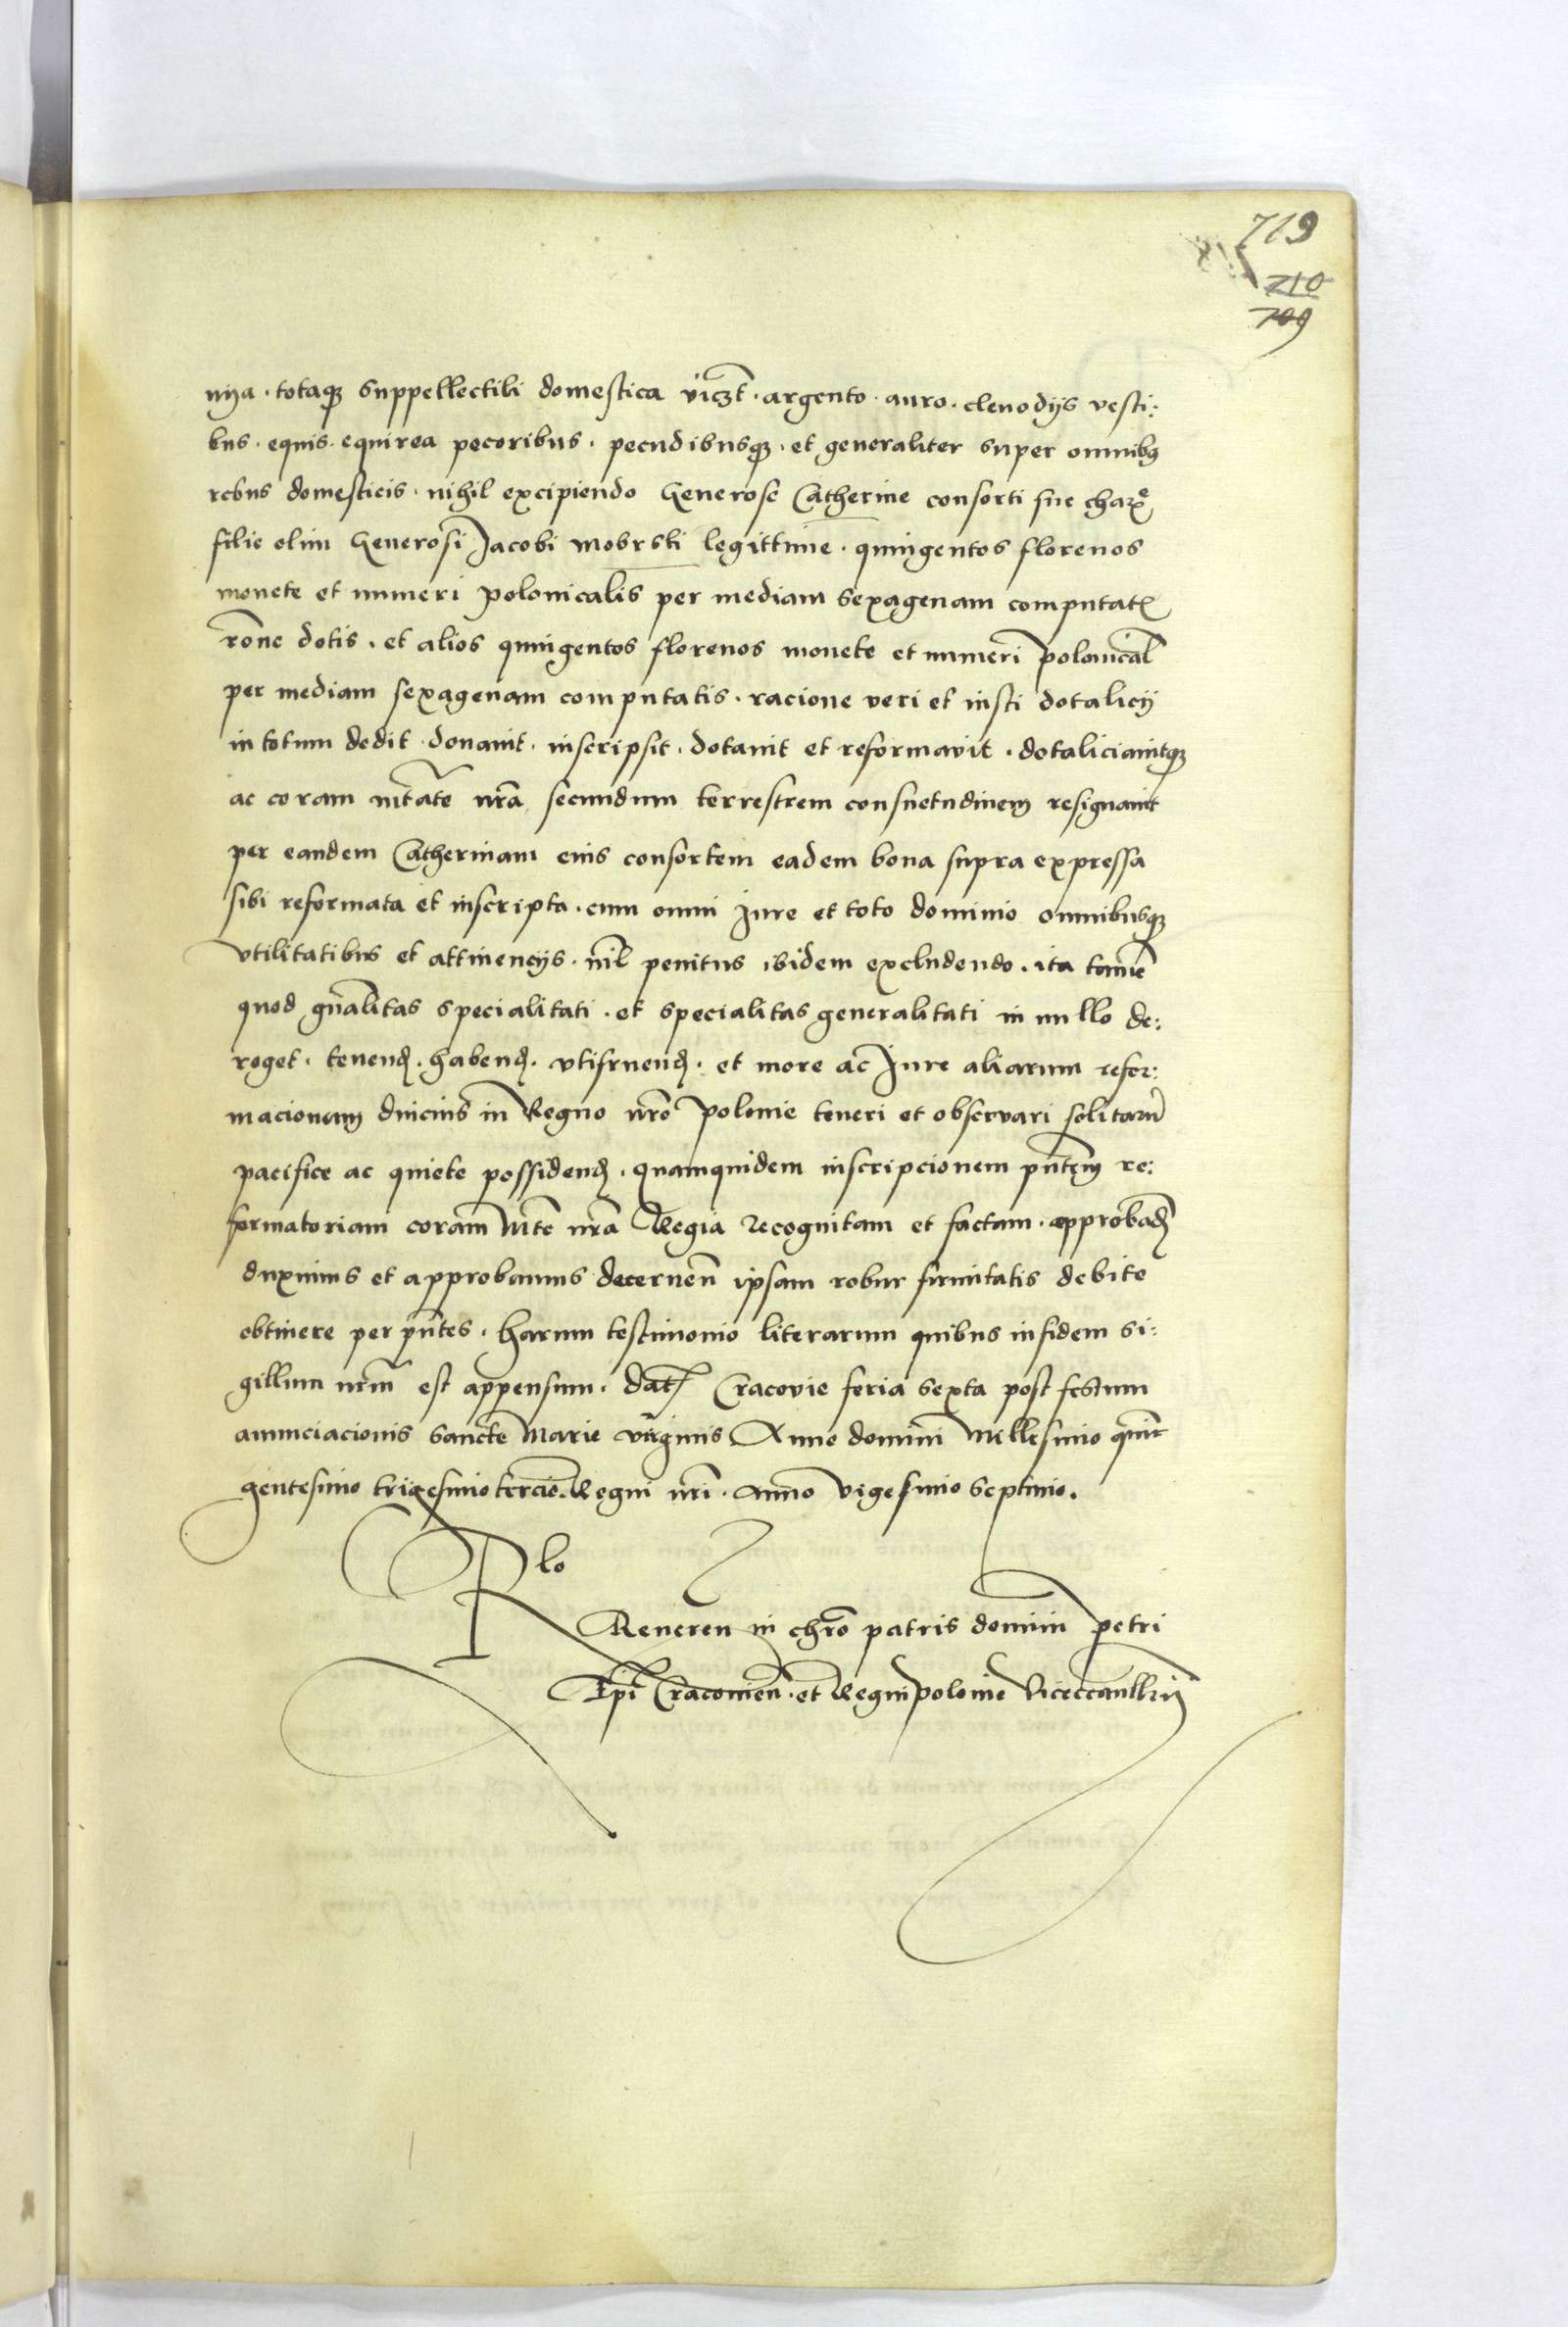 719
710
709
nya . totaq(ue) suppellectili domestica vicz̃t . argento . auro . clenodijs vesti:
bus . equis . equirea pecoribus . pecudibusq(ue) . et generaliter super omnibq
rebus domesticis . nihil excipiendo Generose Catherine consorti sue char(e)
filie olim Generosi Jacobi Mobrski legittime . quingentos florenos
monete et numeri polonicalis per mediam sexagenam computat(is)
rõne dotis . et alios quingentos florenos monete et numeri poloicãl
per mediam sexagenam computatis . racione veri et iusti dotalicij
in totum dedit . donauit . inscripsit . dotauit et reformavit . dotaliciauitq(ue)
ac coram mtãte nrã secundum terrestrem consuetudinem resignauit
per eandem Catherinam eius consortem eadem bona supra expressa
sibi reformata et inscripta . cum omni Jure et toto dominio omnibusq(ue)
vtilitatibus et attinencijs . nil penitus ibidem excludendo . ita tamẽ
quod gñalitas specialitati . et specialitas generalitati in nullo de:
roget . tenend(a) . habend(a) . vtifruend(a) . et more ac Jure aliarum refor:
macionum diucius in Regno nrõ Polonie teneri et observari solitarũ
pacifice ac quiete possidend(a) . quamquidem inscripcionem pñtem re:
formatoriam coram Mtẽ nrã Regia recognitam et factam . approband(am)
duximus et approbamus decerneñ ipsam robur firmitatis debite
obtinere per pñtes . harum testimonio literarum quibus in fidem si:
gillum nrm̃ est appensum . Dat(um) Cracovie feria sexta post festum
anunciacionis Sancte Marie virginis Anno domini Millesimo quin
gentesimo trigesimo tercio . Regni nrĩ . anno vigesimo septimo .
Rlo
Revereñ in chrõ patris domini Petri
Epĩ Cracovieñ . et Regni polonie Vicecanllrij